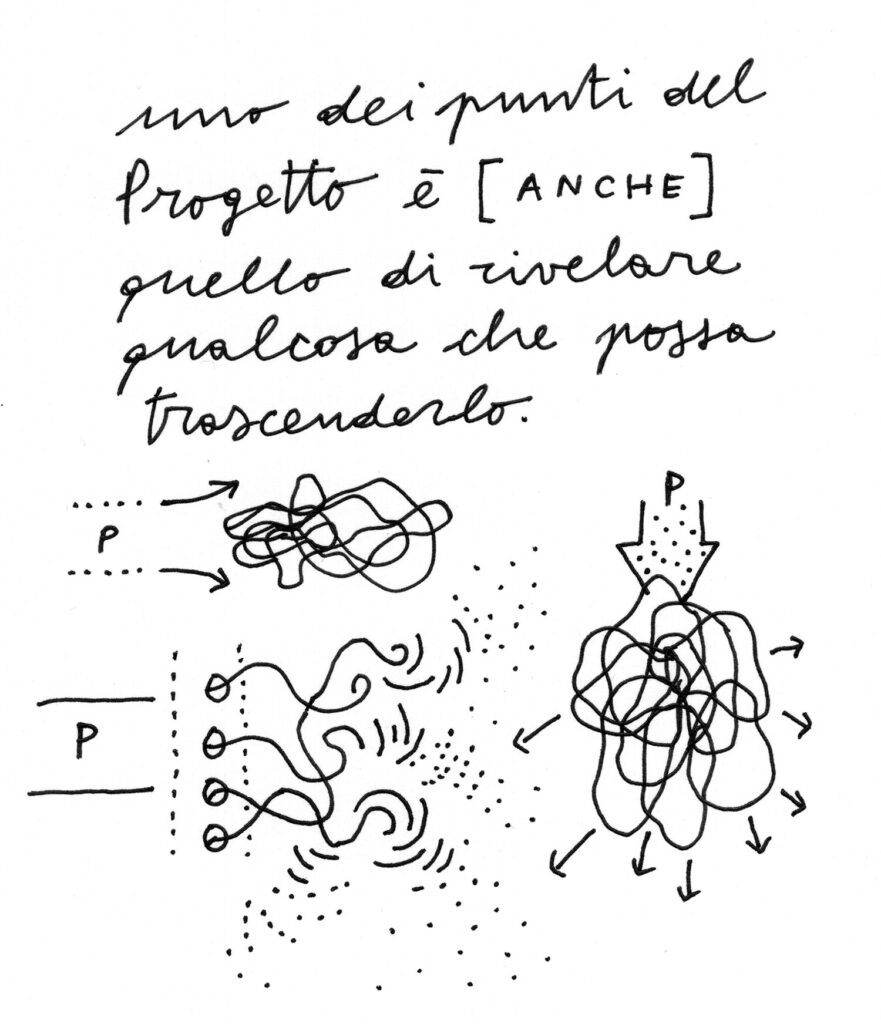 uno dei punti del
Progetto ē [ANCHE]
quello di rivelare
qualcosa che possa
trascenderlo.
P
P
P